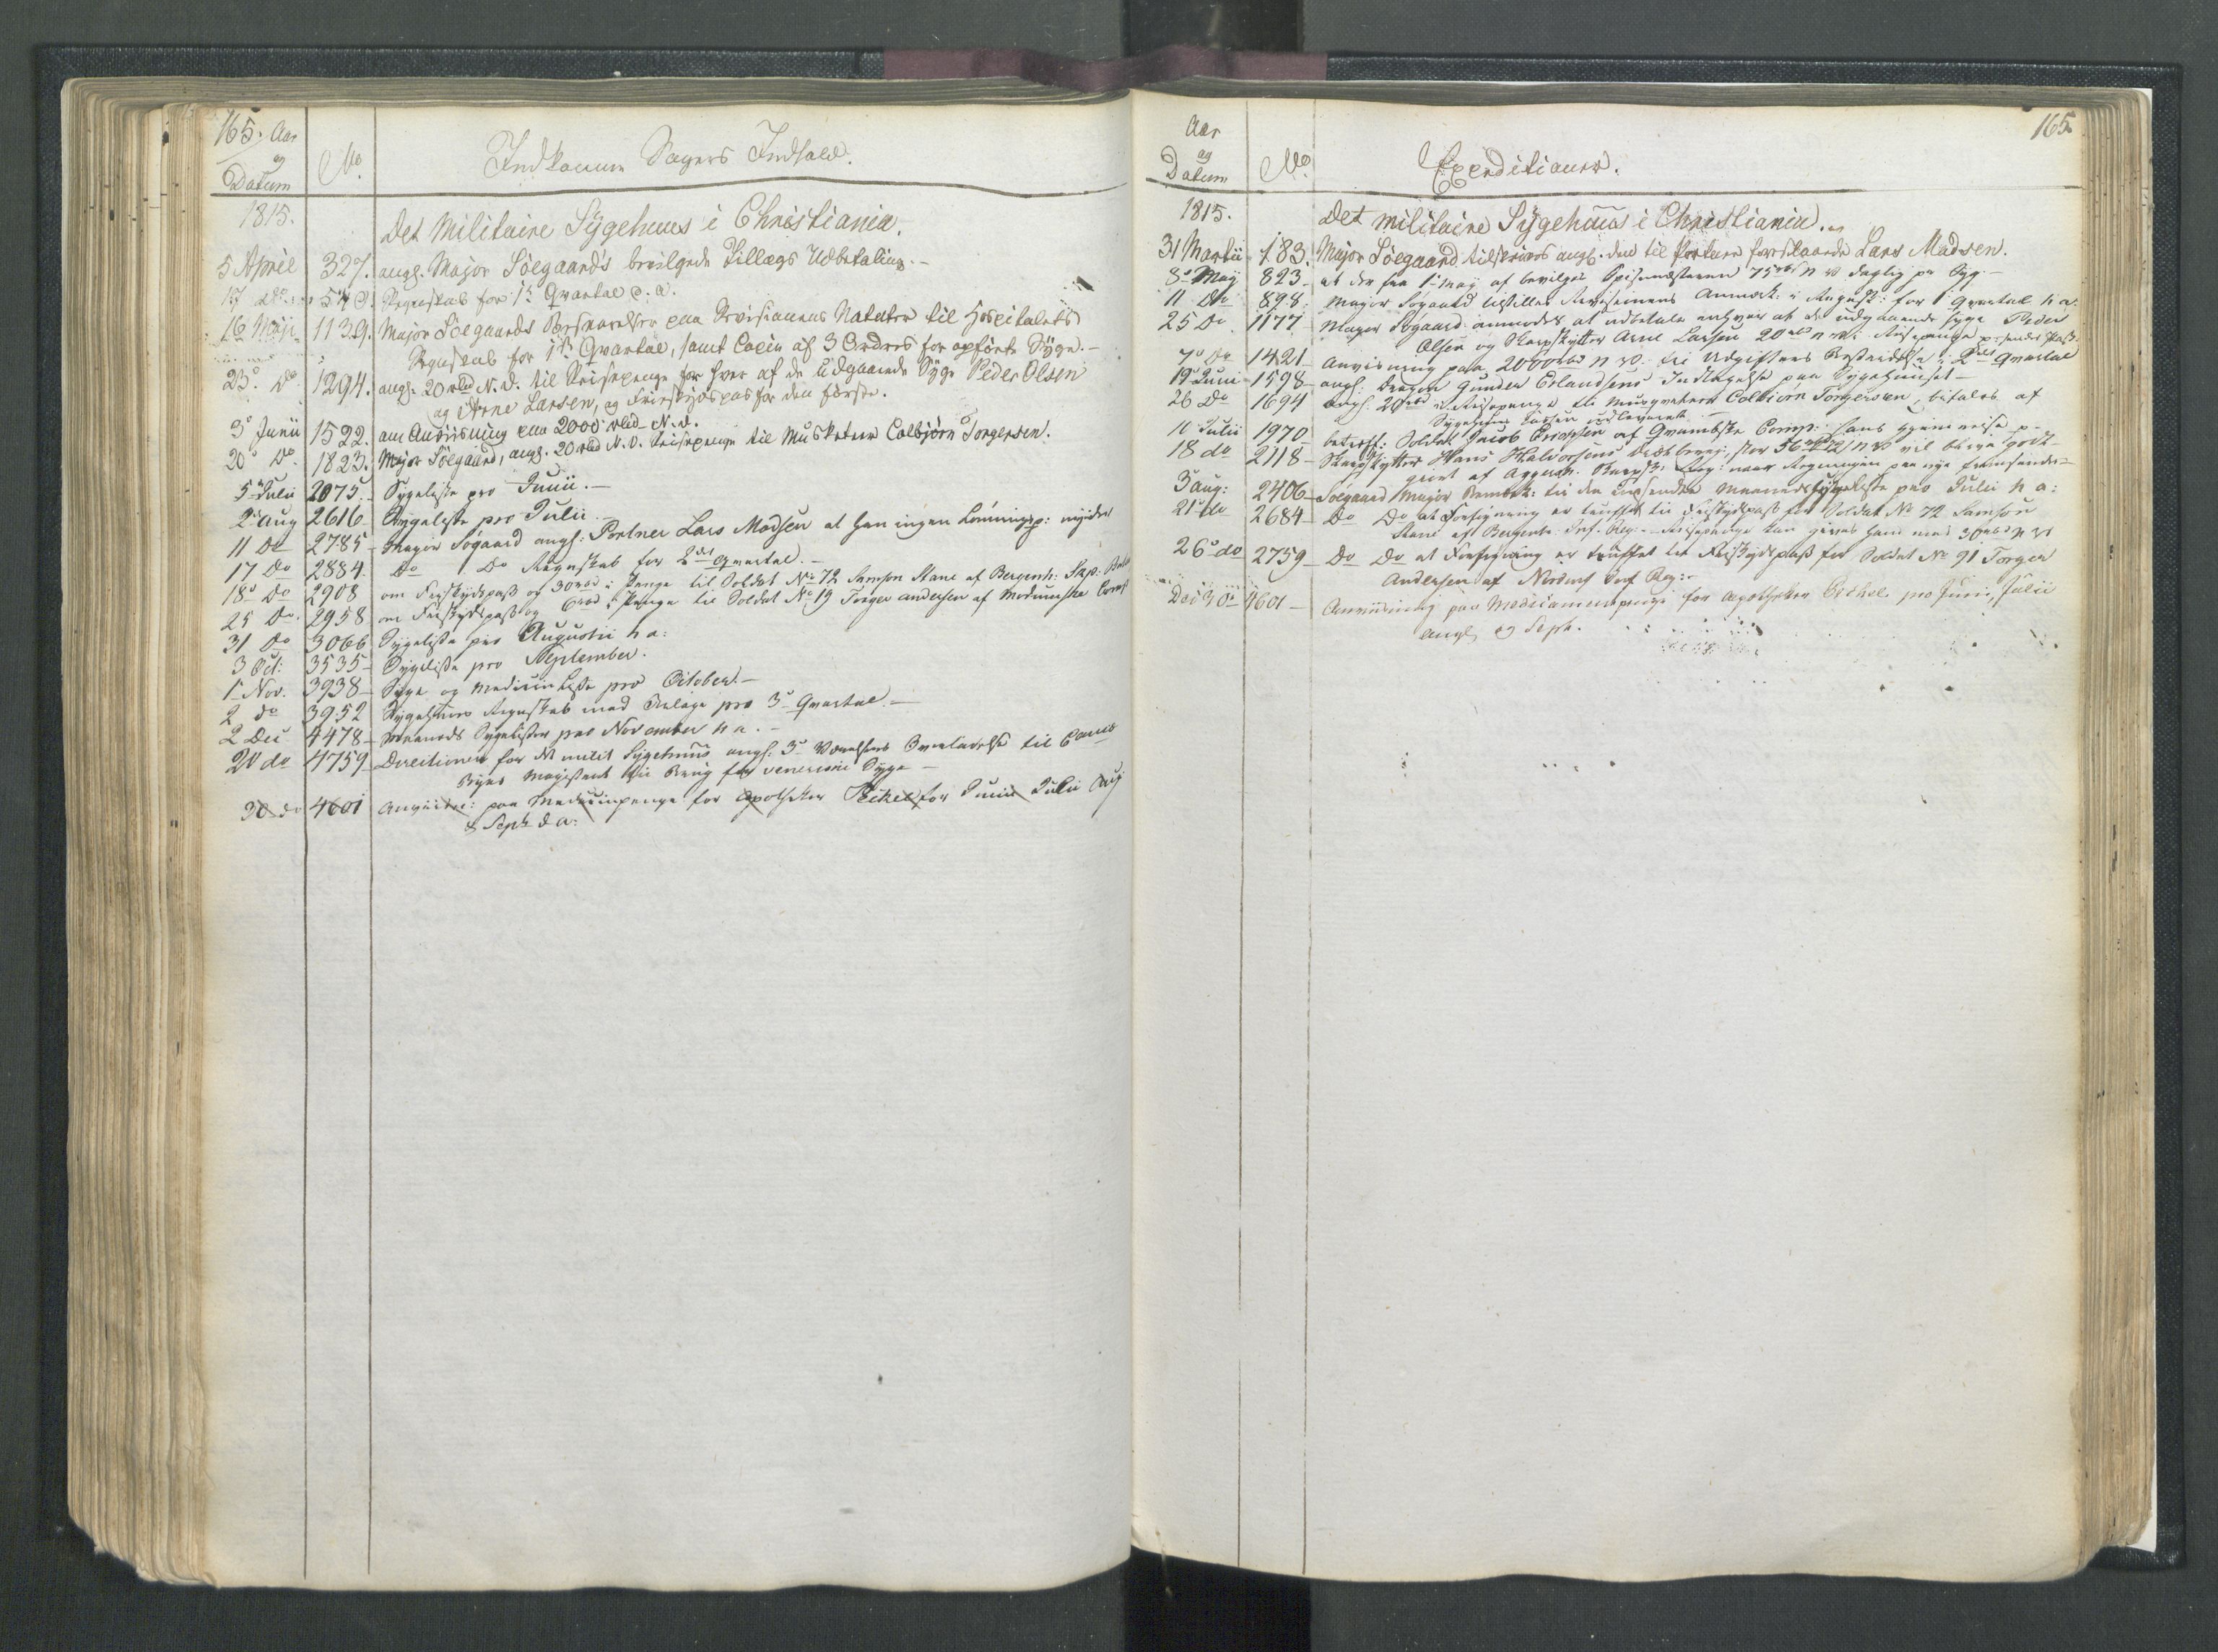 165. Aar
og
Datum
No.
Indkomne Sagers Indhold.
1815.
Det Militaire Sygehuus i Christiania.
5 April 327. angl. Major Söegaard's bevilgede Tillægs Udbetaling.-
17 Do 540. Regnskab for 1ste Qvartal d. a.
16 Maji 1139. Major Söegaards Besvarelser paa Revisionens Notater til Hospitalets
Regnskab for 1ste Qvartal, samt Copie af 3 Ordres for opförte Syge.-
23de Do 1294. angl. 20 rbd N.V. til Reisepenge for hver af de udgaaende Syge Peder Olsen
og Arne Larsen, og Friskydspas for den förste.
3 Junii 1522. om Anviisning paa 2000 rbd N.V.
20 Do 1823. Major Söegaard, angl. 20 rbd N.V. Reisepenge til Musketeer Colbjörn Torgersen.
5 Julii 2075. Sygeliste pro Junii.-
2 Aug 2616 Sygeliste pro Julii.-
11 Do 2785 - Major Sögaard angl: Portner Lars Madsen at han ingen Lönningsp: nyder
17 Do 2884. Do Do Regnskab for 2det Qvartal.-
18 Do 2908 om Friskydspass og 30 rbd i Penge til Soldat No 72 Samson Stane af Bergenh: Skp. Bat
25 Do. 2958 om Friskydspass og 6 rbd i Penge til Soldat No 19 Torger Andersen af Modumske Comp
31 Do 3066 Sygeliste pro Augustii h a:
3 Oct: 3535 - Sygeliste pro September.
1 Nov. 3938 - Syge og Medicin Liste pro October.-
2 do 3952 Sygehuus Regnskab med Bilage pro 3 Qvartal.-
2 Dec 4478 - Maaneds Sygelister pro November h a.-
20 do 4759 - Directionen for det milit Sygehuus angl. 3 Værelsers Overladelse til
Byens Magistrat til Brug for veneriske Syge -
30 do 4601 Anviisn: paa Medicinpenge for Apotheker for Junii Julii Aug
& Sept d a:
165.
Aar
og
Datum
No.
Expeditioner.
1815.
Det militaire Sygehuus i Christiania.
31 Martii 183. Major Söegaard tilskrives angl. den til Portner foreslaaede Lars Madsen.
8 Maij 823. at der fra 1 Maj af bevilges Spisemesteren 75 rbs N V daglig pr Syg -
11 Do 898. Major Sögaard tilstilles Revisionens Anmærk: i Regnsk: for 1 Qvartal h a.
25 Do 1177 Major Sögaard anmodes at udbetale enhver af de udgaaende syge Peder
Olsen og Skarpskytter Arne Larsen 20 rbd N.V. Reisepenge
7 Do 1421 - Anvisning paa 2000 rbd N V. til Udgifters Bestridelse i 2det Qvartal
19 Junii 1598 - angl. Dragon Gunder Erlandsens Indlæggelse paa Sygehuuset -
26 Do 1694 angl. 20 rbd i Reisepenge til Musqveteer Colbiörn Torgersen, betales af
Sygehuus Kassen
10 Julii 1970 - betræff: Soldat Jacob Ericksen af Comp: hans hjemreise p -
18 do 2118 - Skarpskytter Hans Halvorsens stor 56 N V vil blive godt-
giort af naar Regningen paa nye fremsendes -
3 aug: 2406 - Söegaard Major til den indsendte Maaneds Sygeliste pro Julii h a:
21 do 2684 - Do Do at Foreföining er truffet til Friskydspass for Soldat No 72 Samson
Stane af Bergenh. Inf. Reg: - Reisepenge kan gives ham med 30 rbd N V
26 do 2759 - Do Do at Foreföining er truffet til Friskydspass for Soldat No 91 Torger
Andersen af Inf Reg: -
Dec 30 4601 - Anviisning paa Medicamentpenge for Apotheker pro Junii, Julii
Aug & Sept.